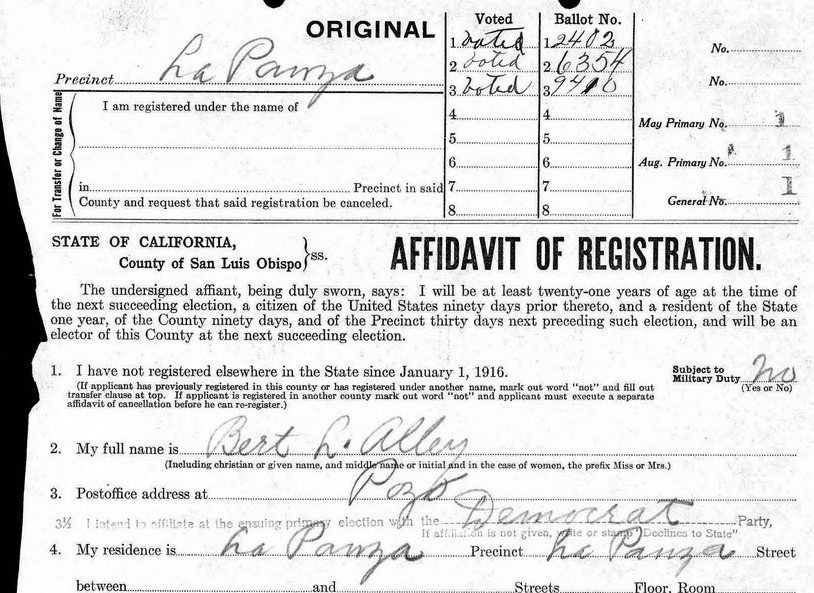 ORIGINAL
Voted Ballot No.
1 voted 1 2402
2 voted 2 6354
3 voted 3 9410
4 4
5 5
6 6
7 7
8 8
No.
No.
May Primary No. 1
Aug. Primary No. 1
General No. 1
Precinct La Panza
For Transfer or Change of Name
I am registered under the name of
in Precinct in said
County and request that said registration be canceled.
STATE OF CALIFORNIA,
County of San Luis Obispo } ss.
AFFIDAVIT OF REGISTRATION.
The undersigned affiant, being duly sworn, says: I will be at least twenty-one years of age at the time of
the next succeeding election, a citizen of the United States ninety days prior thereto, and a resident of the State
one year, of the County ninety days, and of the Precinct thirty days next preceding such election, and will be an
elector of this County at the next succeeding election.
1. I have not registered elsewhere in the State since January 1, 1916.
(If applicant has previously registered in this county or has registered under another name, mark out word "not" and fill out
transfer clause at top. If applicant is registered in another county mark out word "not" and applicant must execute a separate
affidavit of cancellation before he can re-register.)
Subject to
Military Duty No
(Yes or No)
2. My full name is Bert L. Alley
(Including christian or given name, and middle name or initial and in the case of women, the prefix Miss or Mrs.)
3. Postoffice address at Pozo
3½ I intend to affiliate at the ensuing primary election with the Democrat Party,
If affiliation is not given, write or stamp "Declines to State"
4. My residence is La Panza Precinct La Panza Street
between and Streets Floor, Room